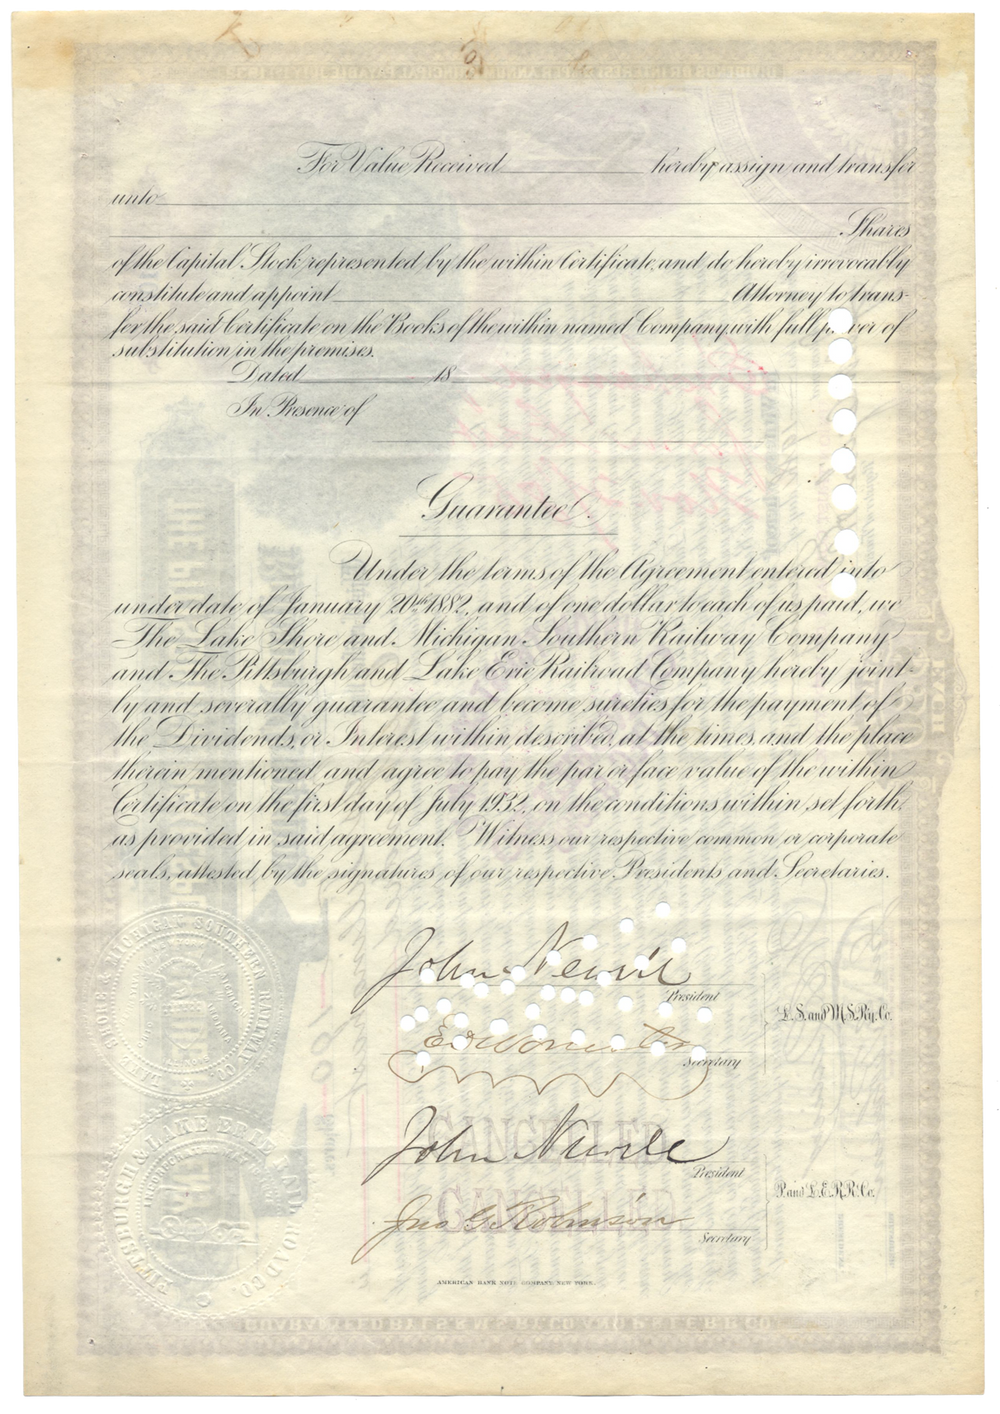 For Value Received hereby assign and transfer
unto
Shares
of the Capital Stock represented by the within Certificate, and do hereby irrevocably
constitute and appoint Attorney to trans-
fer the said Certificate on the Books of the within named Company, with full power of
substitution in the premises.
Dated 18
In Presence of
Guarantee.
Under the terms of the Agreement entered into
under date of January 20th 1882, and of one dollar to each of us paid, we
The Lake Shore and Michigan Southern Railway Company
and The Pittsburgh and Lake Erie Railroad Company hereby joint-
ly and severally guarantee and become sureties for the payment of
the Dividends, or Interest within described, at the times, and the place
therein mentioned, and agree to pay the par or face value of the within
Certificate on the first day of July 1932, on the conditions within set forth
as provided in said agreement. Witness our respective common or corporate
seals, attested by the signatures of our respective Presidents and Secretaries.
John Newell
President
L. S. and M. S. Ry. Co.
E D Worcester
Secretary
CANCELLED
John Newell
President
P. and L. E. R. R. Co.
CANCELLED
Jno G. Robinson
Secretary
AMERICAN BANK NOTE COMPANY, NEW YORK.
SHORE & MICHIGAN SOUTHERN RAILWAY CO
PITTSBURGH & LAKE ERIE RAILROAD CO